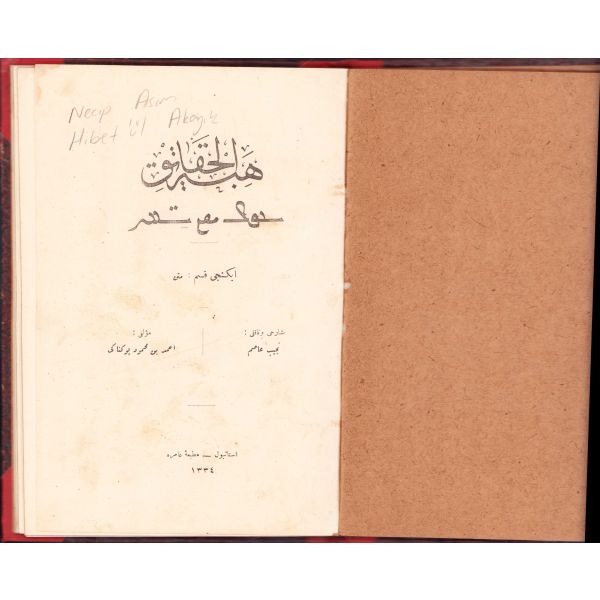 Necip Asım
Hibet ül Akayık
هبة الحقائق
ایكنجی قسم : متن
شارحی وناقلی :
نجیب عاصم
مؤلفی :
احمد بن محمود یوكناكی
استانبول — مطبعهٔ عامره
١٣٣٤